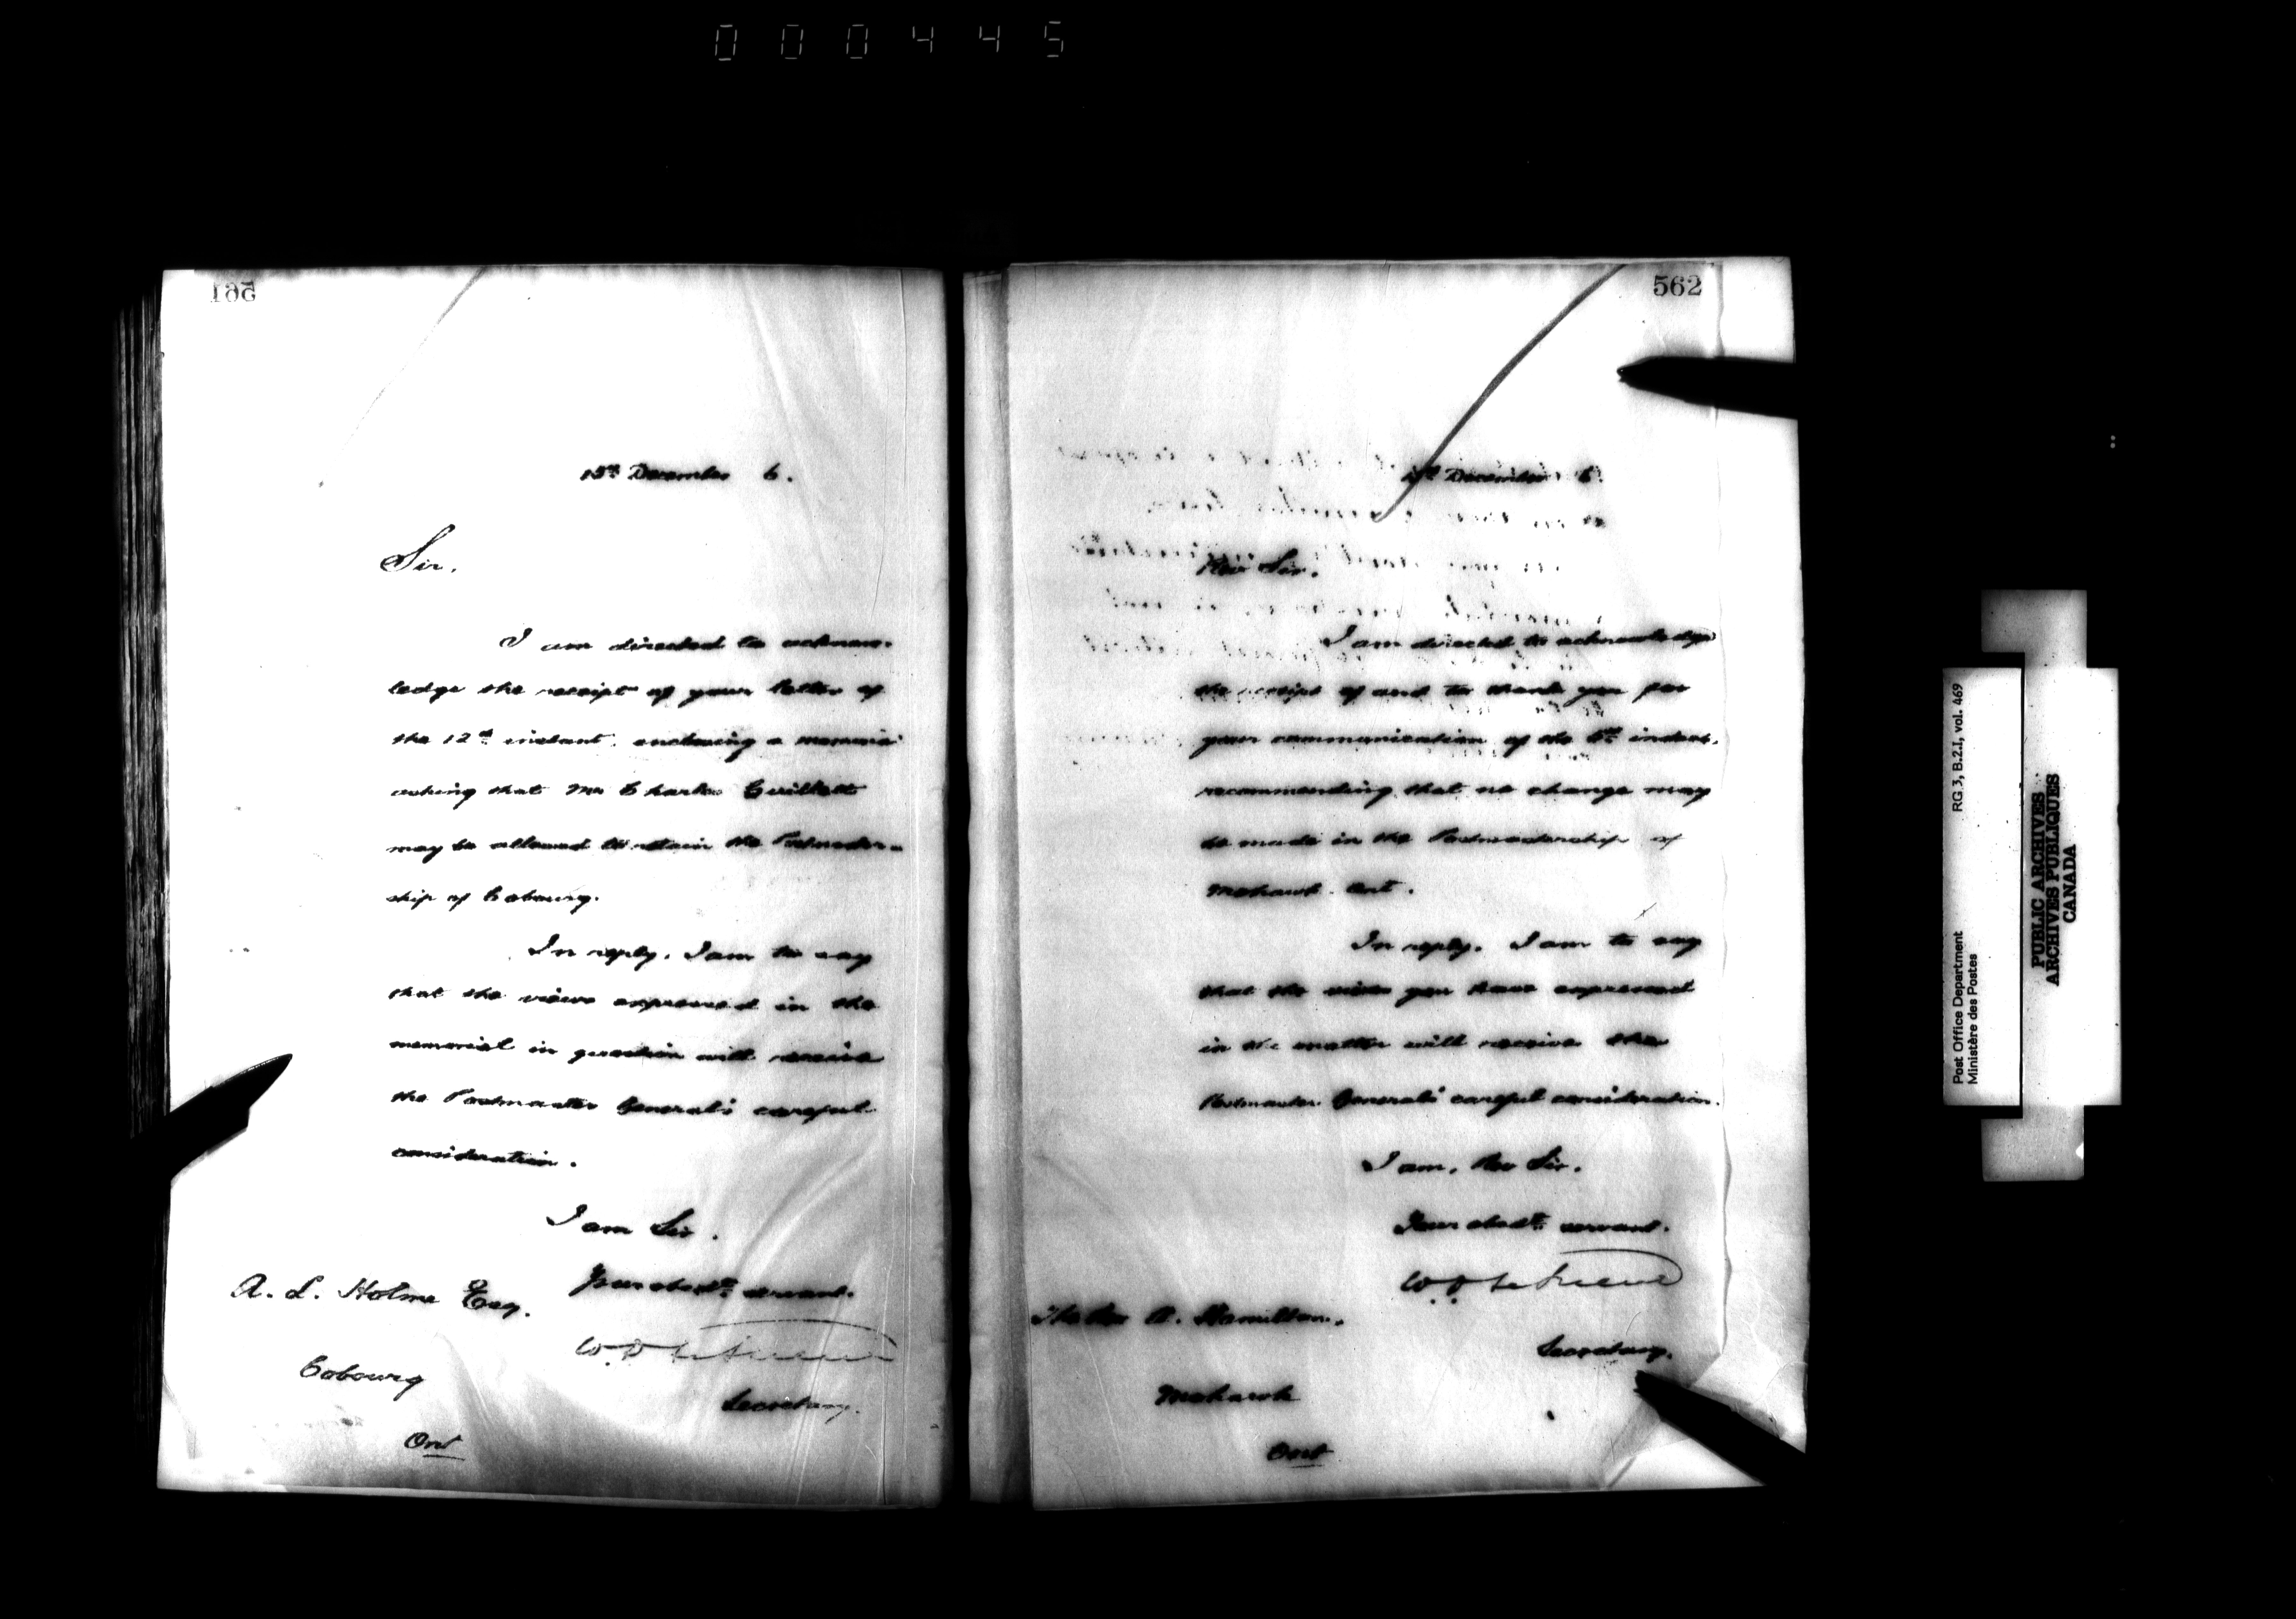 000445
561
15th December 6.
Sir.
I am directed to acknow-
ledge the receipt of your letter of
the 12th instant. enclosing a memorial
asking that Mr Charles Guillett
may be allowed to retain the Postmaster-
ship of Cobourg.
In reply, I am to say
that the views expressed in the
memorial in question will receive
the Postmaster General's careful
consideration.
I am Sir.
Your obedt. servant.
A. L. Holme Esq.
Secretary.
Cobourg
Ont
562
December 6.
Rev Sir.
I am directed to acknowledge
the receipt of and to thank you for
your communication of the instant.
recommending that no change may
be made in the Postmastership of
Mohawk. Ont.
In reply. I am to say
that the views you have expressed
in the matter will receive the
Postmaster General's careful consideration.
I am, Rev Sir.
Your obedt. servant.
The Rev A. Hamilton.
Secretary.
Mohawk
Ont
Post Office Department
Ministère des Postes
RG 3, B.2.I, vol. 469
PUBLIC ARCHIVES
ARCHIVES PUBLIQUES
CANADA